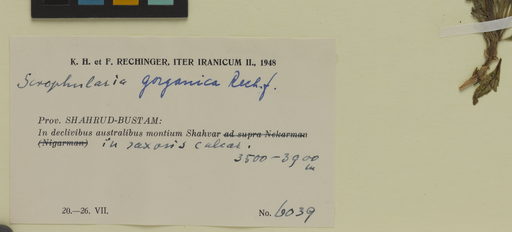 K. H. et F. RECHINGER, ITER IRANICUM II., 1948
Scrophularia gorganica Rech.f.
Prov. SHAHRUD-BUSTAM:
In declivibus australibus montium Shahvar ad supra Nekarman
(Nigarman) in saxosis calcar.
3500-3900
m
20.—26. VII.
No. 6039